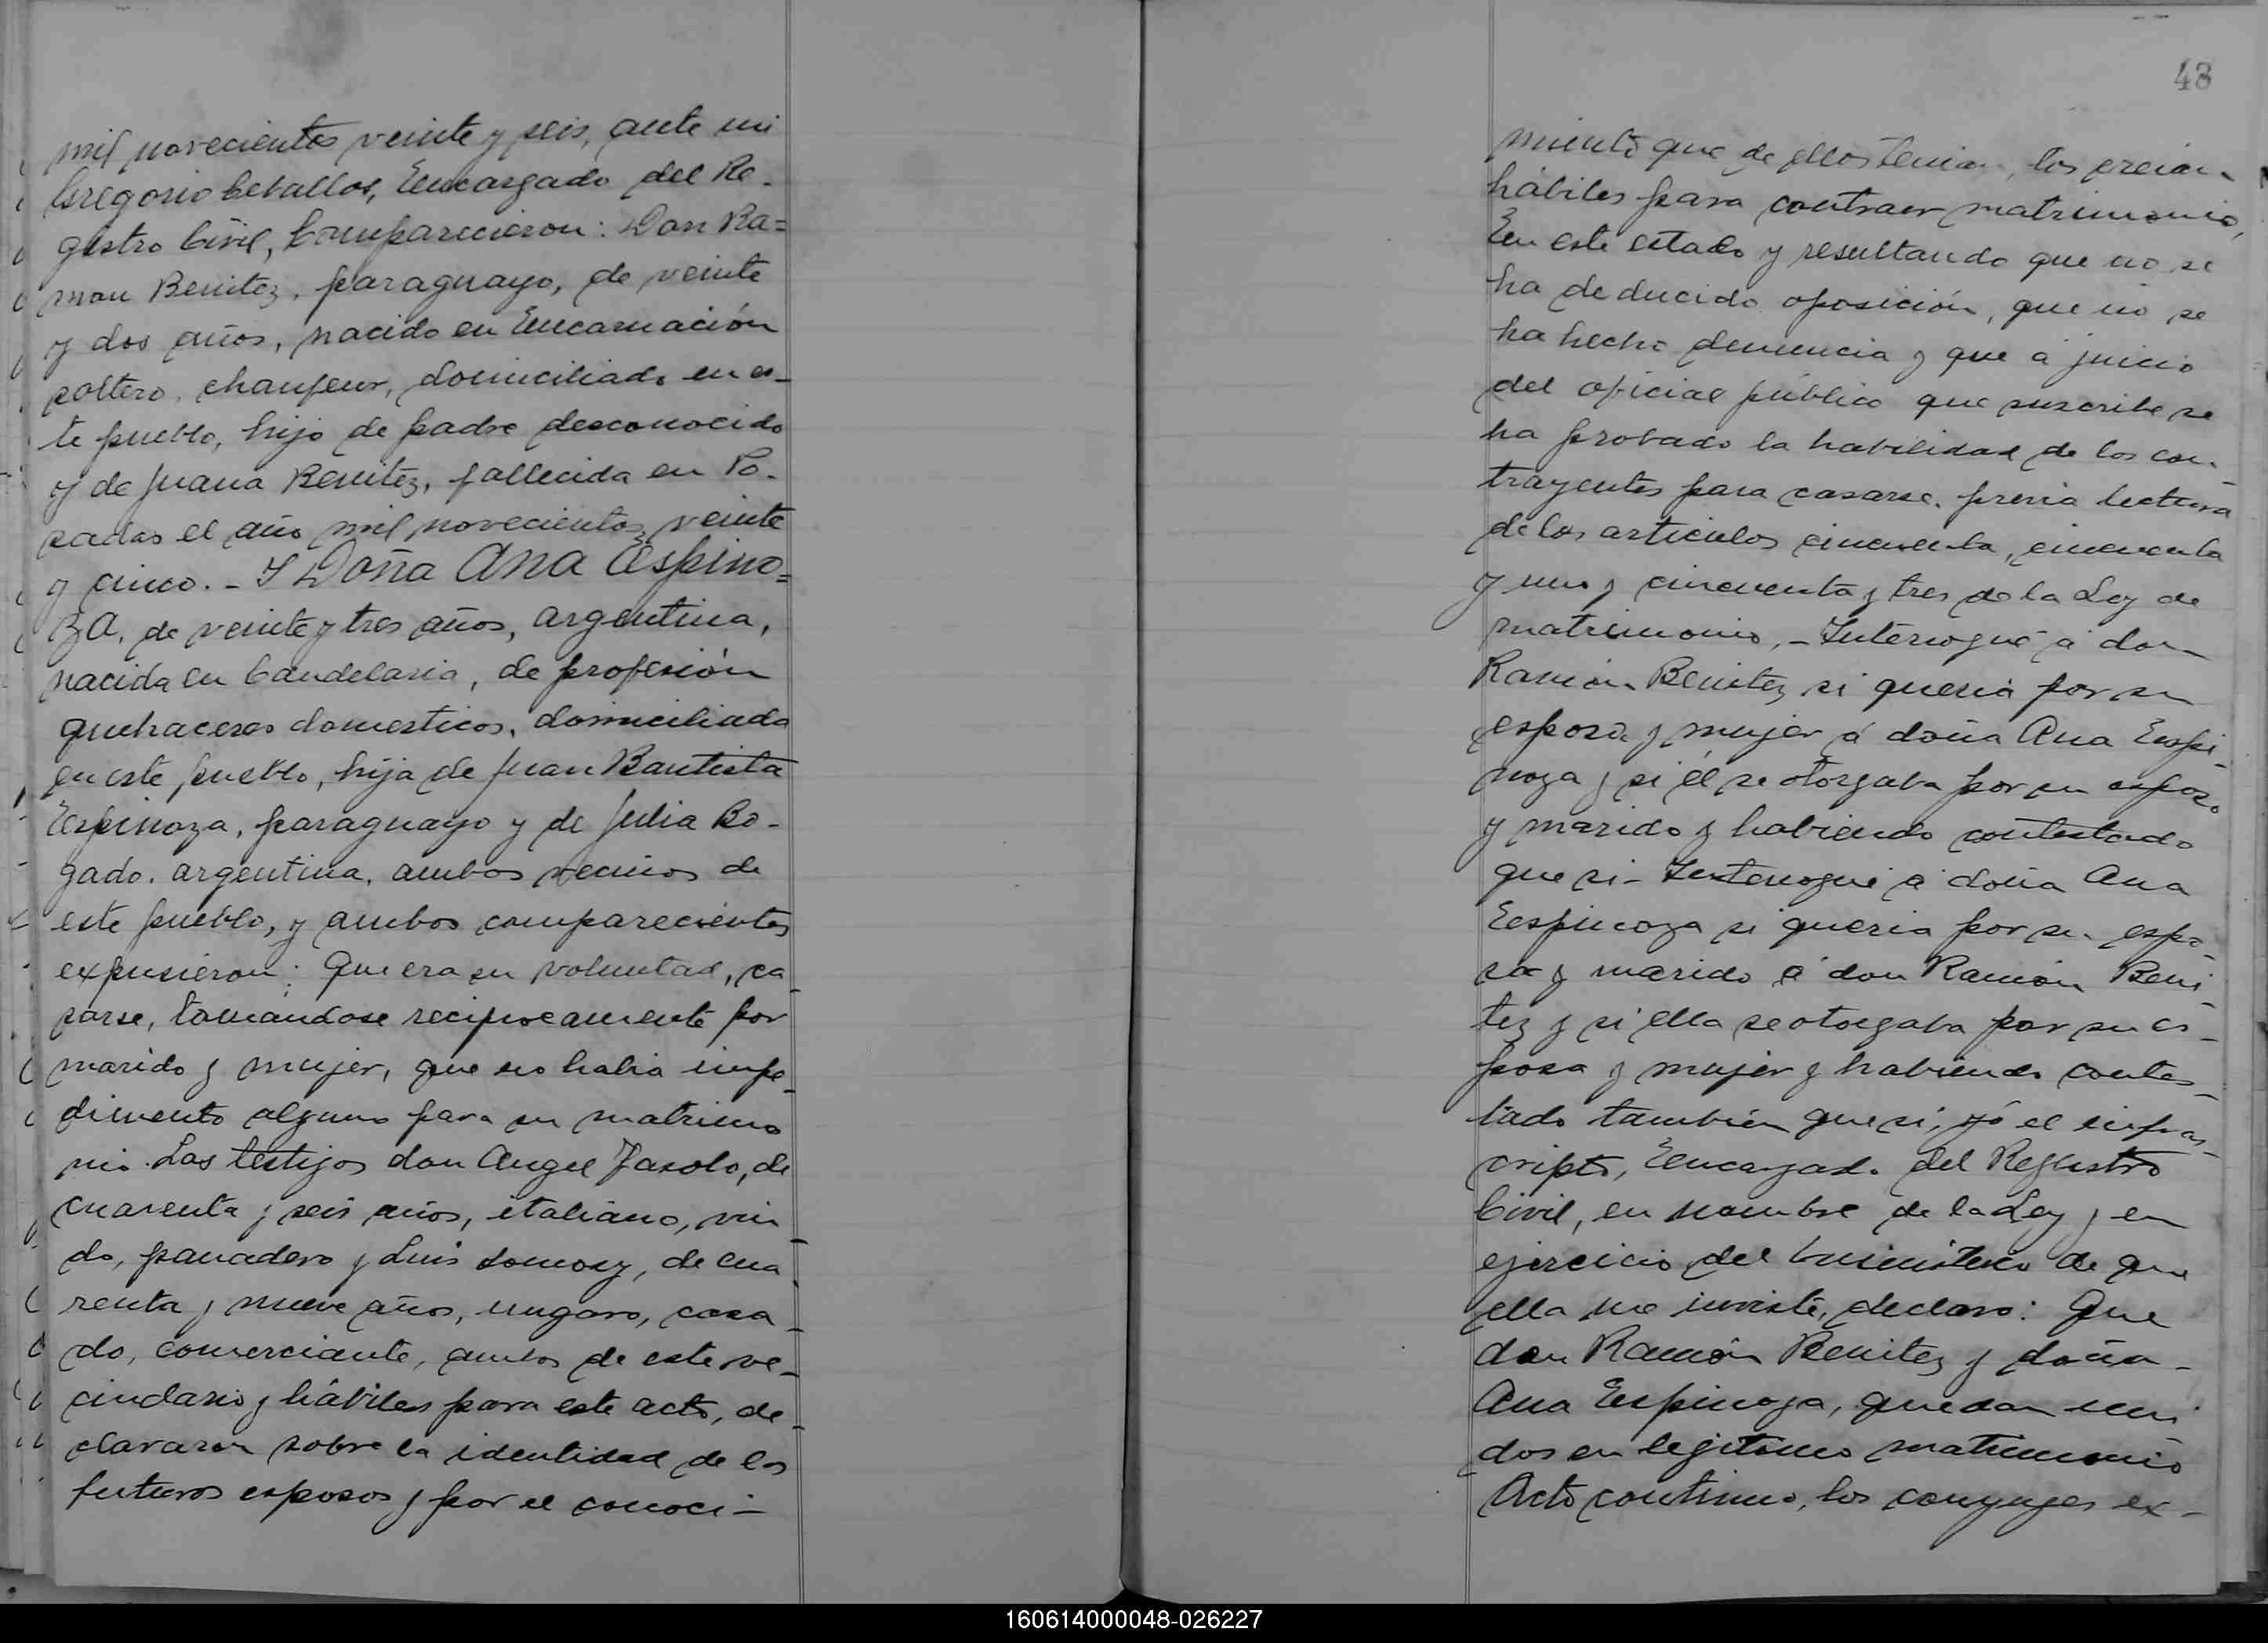 mil novecientos veinte y seis, ante mi
Gregorio Ceballos, Encargado del Re-
gistro Civil, Comparecieron: Don Ra=
mon Benitez, paraguayo, de veinte
y dos años, nacido en Encarnación
soltero, chaufeur, domiciliado en es-
te pueblo, hijo de padre desconocido
y de Juana Benitez, fallecida en Po-
sadas el año mil novecientos veinte
y cinco. - Y Doña Ana Espino=
za, de veinte y tres años, argentina,
nacida en Candelaria, de profesión
quehaceres domesticos, domiciliada
en este pueblo, hija de Juan Bautista
Espinoza, paraguayo y de Julia Bo-
gado, argentina, ambos vecinos de
este pueblo, y ambos comparecientes
expusieron: Que era su voluntad, ca-
sarse, tomandose reciprocamente por
marido y mujer, que no habia impe-
dimento alguno para su matrimo
nio. Los testigos don Angel Fasolo, de
cuarenta y seis años, italiano, viu-
do, panadero y Luis Somosy, de cua-
renta y nueve años, ungaro, casa-
do, comerciante, ambos de este ve-
cindario y hábiles para este acto, de-
clararon sobre la identidad de los
futuros esposos y por el conoci-
48
miento que de ellos tenian, los creian
hábiles para contraer matrimonio,
En este estado y resultando que no se
ha deducido oposición, que no se
ha hecho denuncia y que á juicio
del oficial público que suscribe se
ha probado la habilidad de los con-
trayentes para casarse, previa lectura
de los articulos cincuenta, cincuenta
y uno y cincuenta y tres de la Ley de
matrimonio, - Interrogué á don
Ramón Benitez si queria por su
esposa y mujer á doña Ana Espi-
noza y si él se otorgaba por su esposo
y marido y habiendo contestado
que si - Interrogué á doña Ana
Espinoza si queria por su espo-
so y marido á don Ramón Beni-
tez y si ella se otorgaba por su es-
posa y mujer y habiendo contes-
tado también que si, yó el infras-
cripto, Encargado del Registro
Civil, en nombre de la Ley y en
ejercicio del ministerio de que
ella me inviste, declaro: Que
don Ramón Benitez y doña -
Ana Espinoza, quedan uni-
dos en legitimo matrimonio
Acto continuo, los conyuges ex-
160614000048-026227